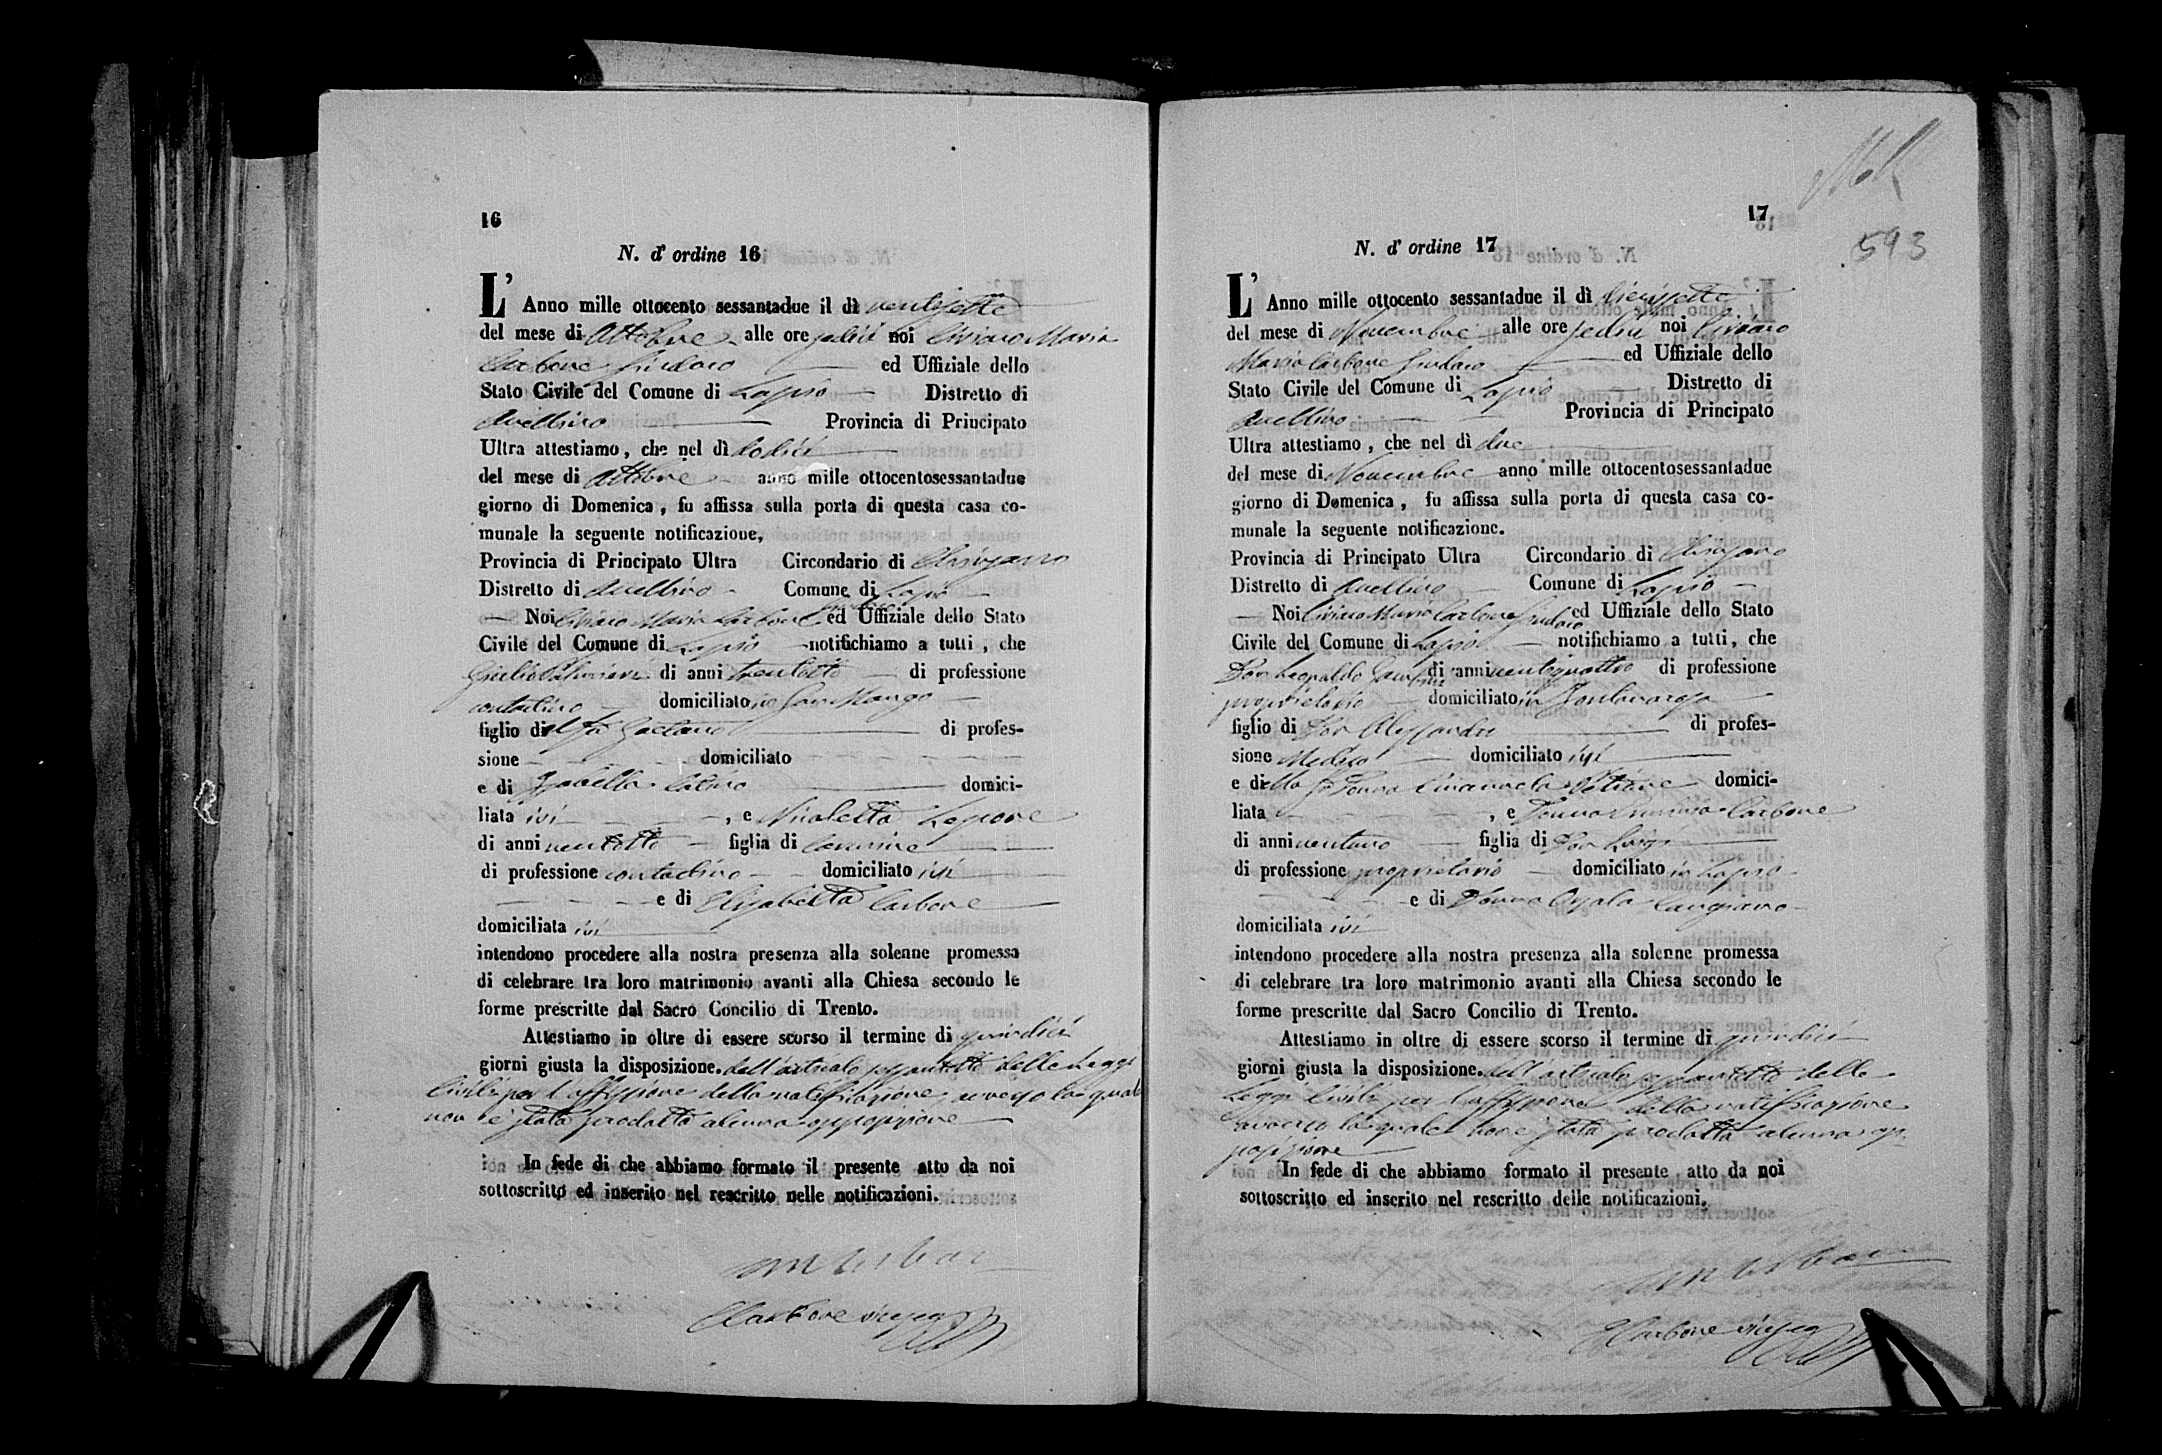 16
N. d' ordine 16
L' Anno mille ottocento sessantadue il dì ventisette
del mese di Ottobre alle ore sedici noi Ciriaco Maria
Carbone Sindaco ed Uffiziale dello
Stato Civile del Comune di Lapio Distretto di
Avellino Provincia di Principato
Ultra attestiamo, che nel dì dodici
del mese di Ottobre anno mille ottocentosessantadue
giorno di Domenica, fu affissa sulla porta di questa casa co-
munale la seguente notificazione,
Provincia di Principato Ultra Circondario di Chiusano
Distretto di Avellino Comune di Lapio
Noi Ciriaco Maria Carbone ed Uffiziale dello Stato
Civile del Comune di Lapio notifichiamo a tutti, che
Giulio di anni trentotto di professione
contadino domiciliato in San Mango
figlio del fu Gaetano di profes-
sione domiciliato
e di domici-
liata ivi, e Nicoletta Lepore
di anni ventotto figlia di Carmine
di professione contadino domiciliato ivi
e di Elisabetta Carbone
domiciliata ivi
intendono procedere alla nostra presenza alla solenne promessa
di celebrare tra loro matrimonio avanti alla Chiesa secondo le
forme prescritte dal Sacro Concilio di Trento.
Attestiamo in oltre di essere scorso il termine di quindici
giorni giusta la disposizione. dell'articolo sessantotto delle Leggi
Civili per l'affissione della notificazione avverso la quale
non è stata prodotta alcuna opposizione
In fede di che abbiamo formato il presente atto da noi
sottoscritto ed inserito nel rescritto nelle notificazioni.
Carbone
17
593
N. d' ordine 17
L' Anno mille ottocento sessantadue il dì diecissette
del mese di Novembre alle ore sedici noi Ciriaco
Maria Carbone Sindaco ed Uffiziale dello
Stato Civile del Comune di Lapio Distretto di
Avellino Provincia di Principato
Ultra attestiamo, che nel dì due
del mese di Novembre anno mille ottocentosessantadue
giorno di Domenica, fu affissa sulla porta di questa casa co-
munale la seguente notificazione.
Provincia di Principato Ultra Circondario di Chiusano
Distretto di Avellino Comune di Lapio
Noi Ciriaco Maria Carbone Sindaco ed Uffiziale dello Stato
Civile del Comune di Lapio notifichiamo a tutti, che
Don Leopoldo di anni ventiquattro di professione
proprietario domiciliato in Fontanarosa
figlio di Don Alessandro di profes-
sione Medico domiciliato ivi
e della fu Donna Emanuela domici-
liata, e Donna Carbone
di anni ventuno figlia di Don Luigi
di professione proprietario domiciliato in Lapio
e di Donna
domiciliata ivi
intendono procedere alla nostra presenza alla solenne promessa
di celebrare tra loro matrimonio avanti alla Chiesa secondo le
forme prescritte dal Sacro Concilio di Trento.
Attestiamo in oltre di essere scorso il termine di quindici
giorni giusta la disposizione. dell'articolo sessantotto delle
Leggi Civili per l'affissione della notificazione
avverso la quale non è stata prodotta alcuna op-
posizione
In fede di che abbiamo formato il presente atto da noi
sottoscritto ed inscrito nel rescritto delle notificazioni.
Carbone